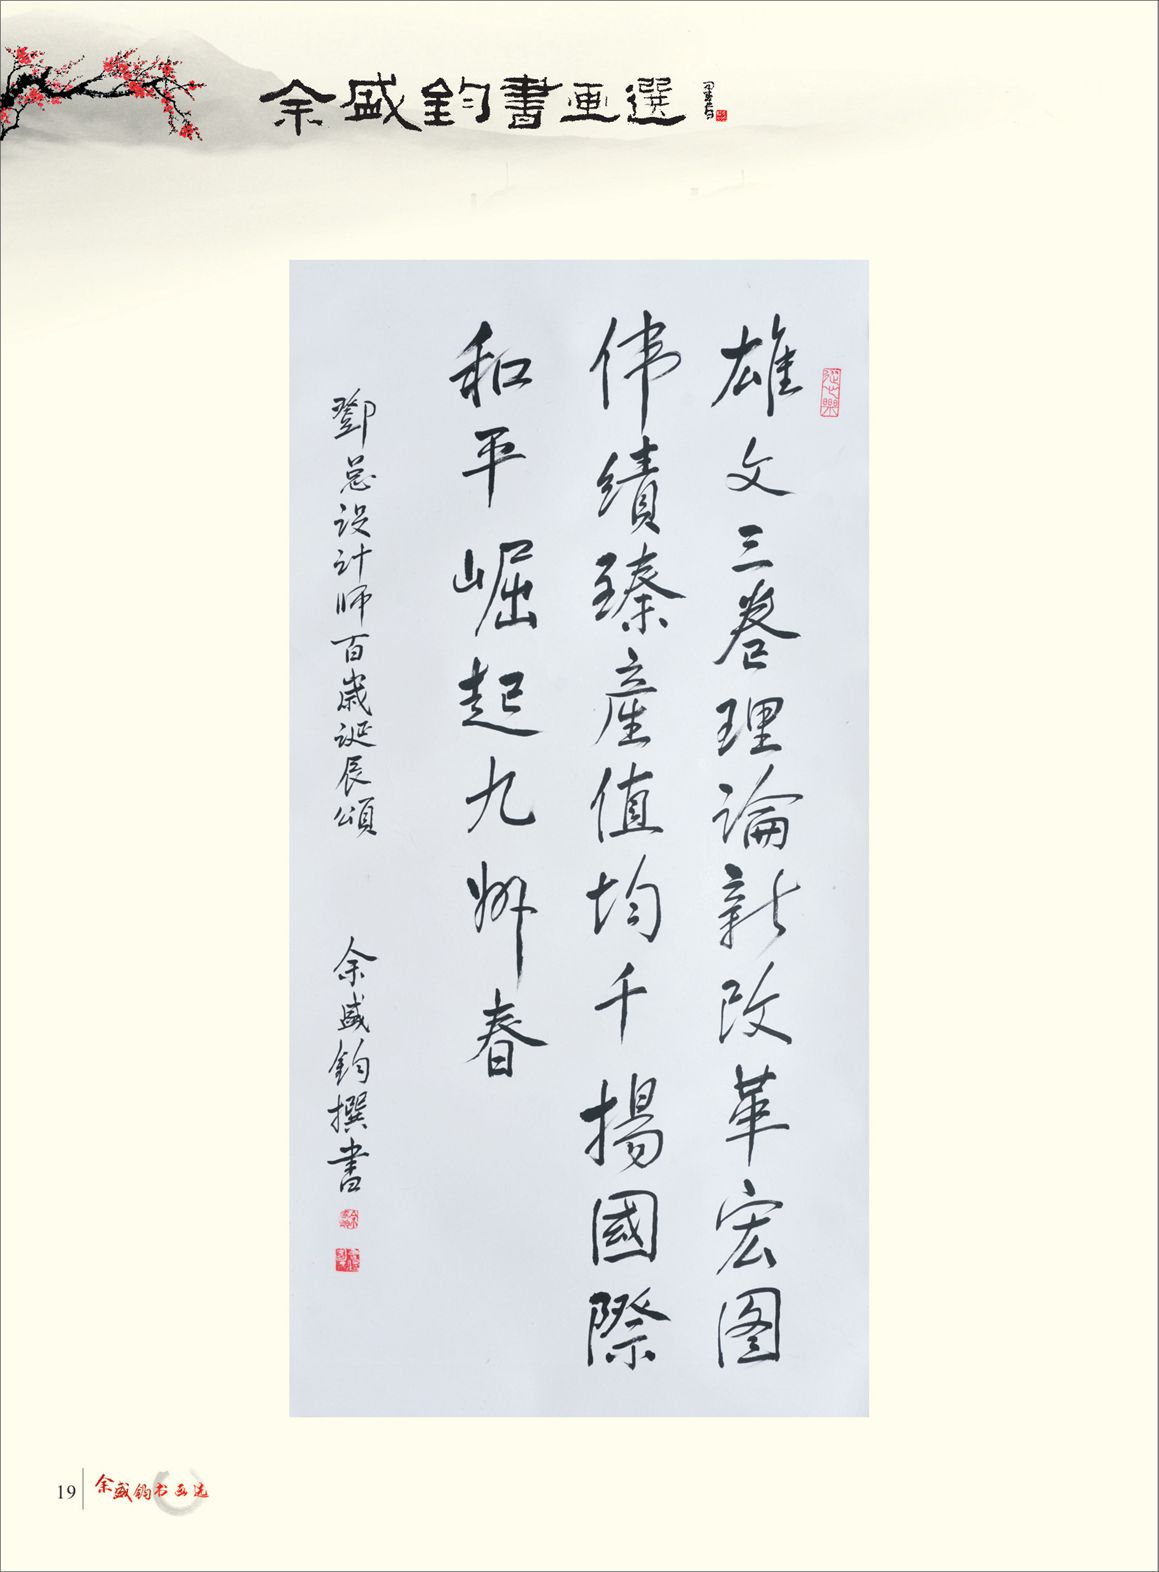 余盛鈞書画選
雄文三卷理論新改革宏图
伟績臻產值均千揚國際
和平崛起九州春
鄧总设计师百歲诞辰頌
余盛鈞撰書
19
余盛钧书画选